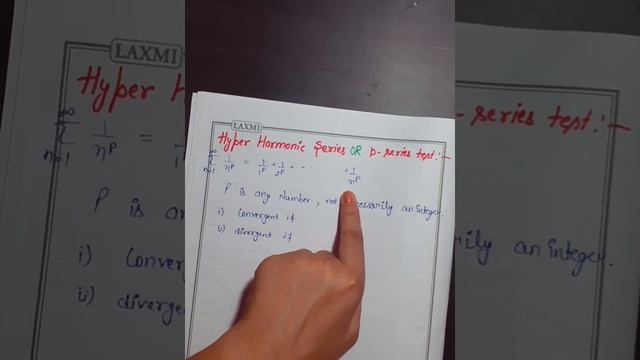 LAXMI
Hyper Harmonic Series OR p-series test:-
∞ Σ n=1 1/n^p = 1/1^p + 1/2^p + - ..... + 1/n^p
P is any Number, not necessarily an integer.
i) Convergent if
ii) divergent if